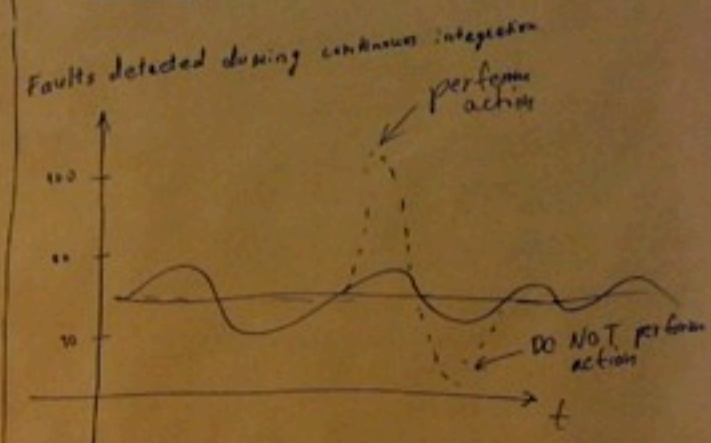 Faults detected during continuous integration
perform
action
100
DO NOT perform
action
t